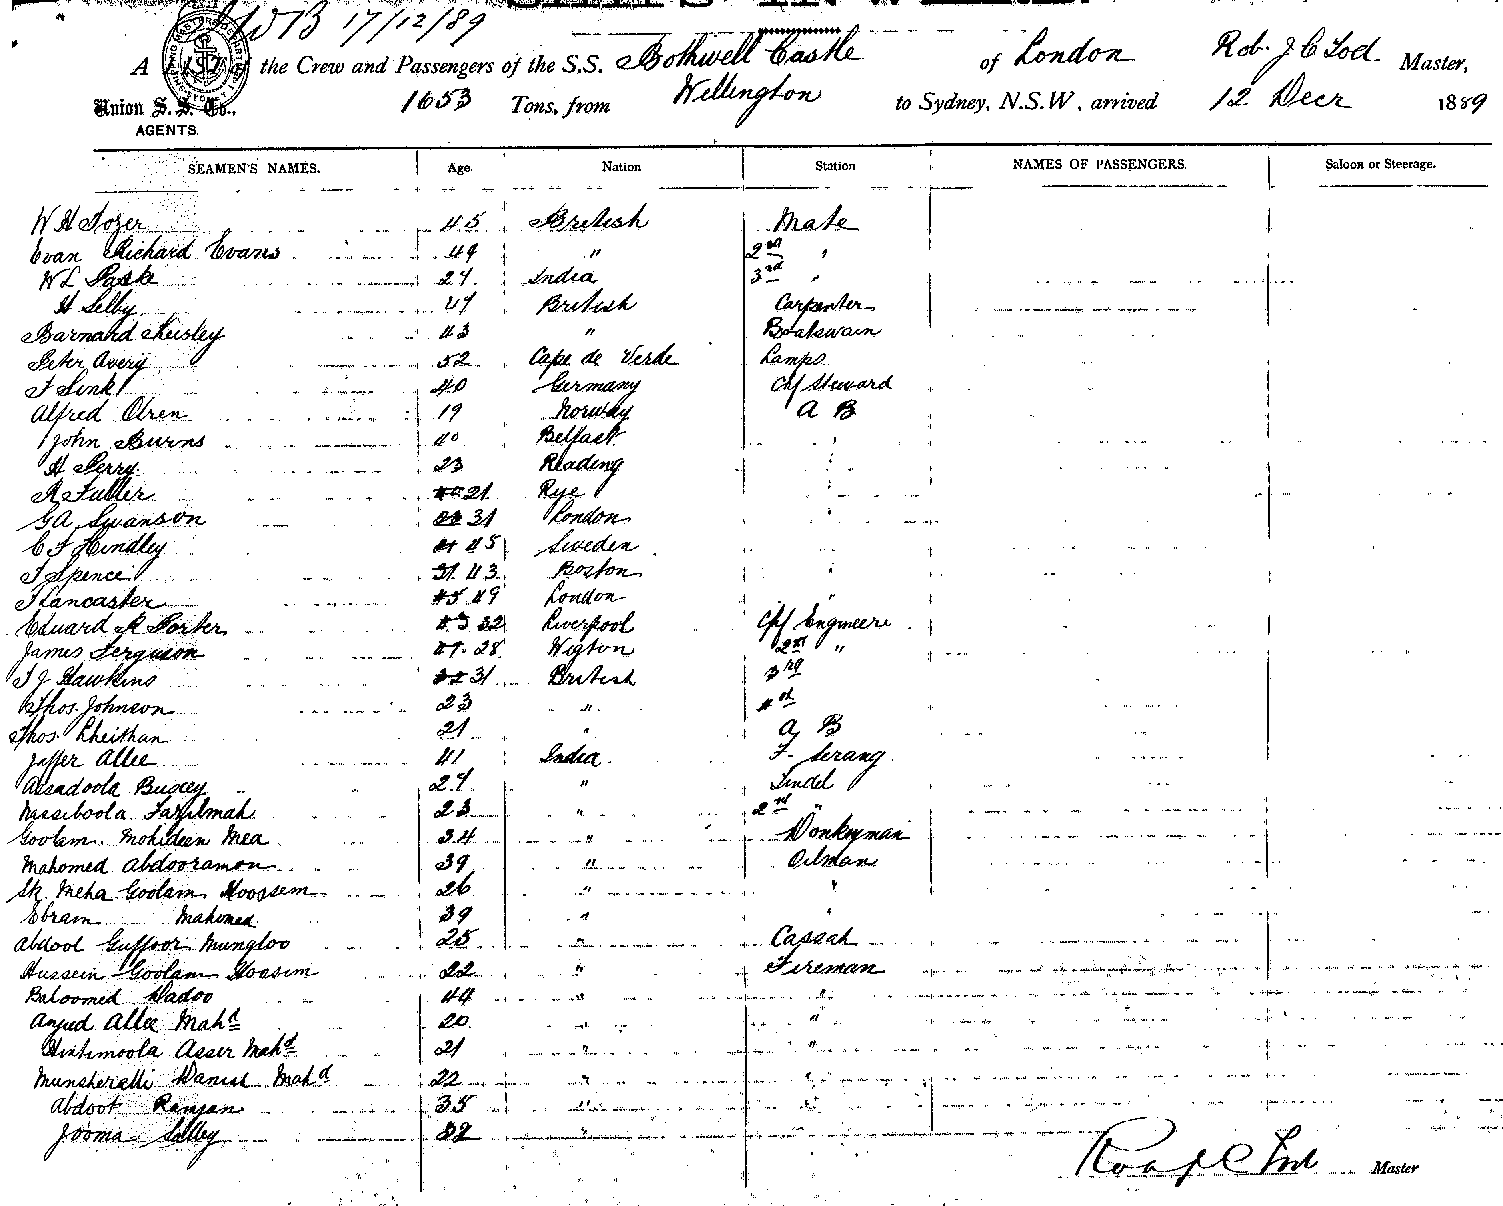 WB 17/12/89
A List of the Crew and Passengers of the S.S. Bothwell Castle of London Rob. J C Tod. Master,
Union S. S. Co., 1653 Tons, from Wellington to Sydney, N.S.W, arrived 12 Decr 1889
AGENTS.
SEAMEN'S NAMES. Age. Nation Station NAMES OF PASSENGERS. Saloon or Steerage.
W H Tozer 45 British Mate
Evan Richard Evans 49 " 2nd "
W L 24 India 3rd "
H Selby 47 British Carpenter
Barnard 43 " Boatswain
Peter Avery 52 Cape de Verde Lamps
F Sink 40 Germany Ch/ Steward
Alfred Olsen 19 Norway A B
John Burns 40 Belfast "
H Perry 23 Reading "
R Fuller 21 Rye "
G A Swanson 31 London "
C F Hindley 45 Sweden "
F Spence 43 Boston "
J Lancaster 49 London "
Eduard R Porter 32 Liverpool Ch/ Engineer
James Ferguson 28 Wigton 2nd "
T J Hawkins 31 British 3rd
Thos. Johnson 23 " 4th
Thos. 21 " A B
Jaffer Allee 41 India F. Serang
Assadoola Buxey 27 " Tindel
Nassiboola Fazilmah 23 " 2nd "
Goolam Mohideen Mea 34 " Donkeyman
Mahomed Abdooramon 39 " Oilman
Sk Meha Goolam Hoossem 26 " "
Ebram Mahomed 39 " "
Abdool Guffoor Mungloo 25 " Cassab
Hussein Goolam Hoosem 22 " Fireman
Baloomed Dadoo 44 " "
Anjud Allee Mahd 20 " "
Hintimoola Asser Mahd 21 " "
Munsheralli Danish Mahd 22 " "
Abdool Ramjan 35 " "
Jooma Salley 32 "
Rob J C Tod Master